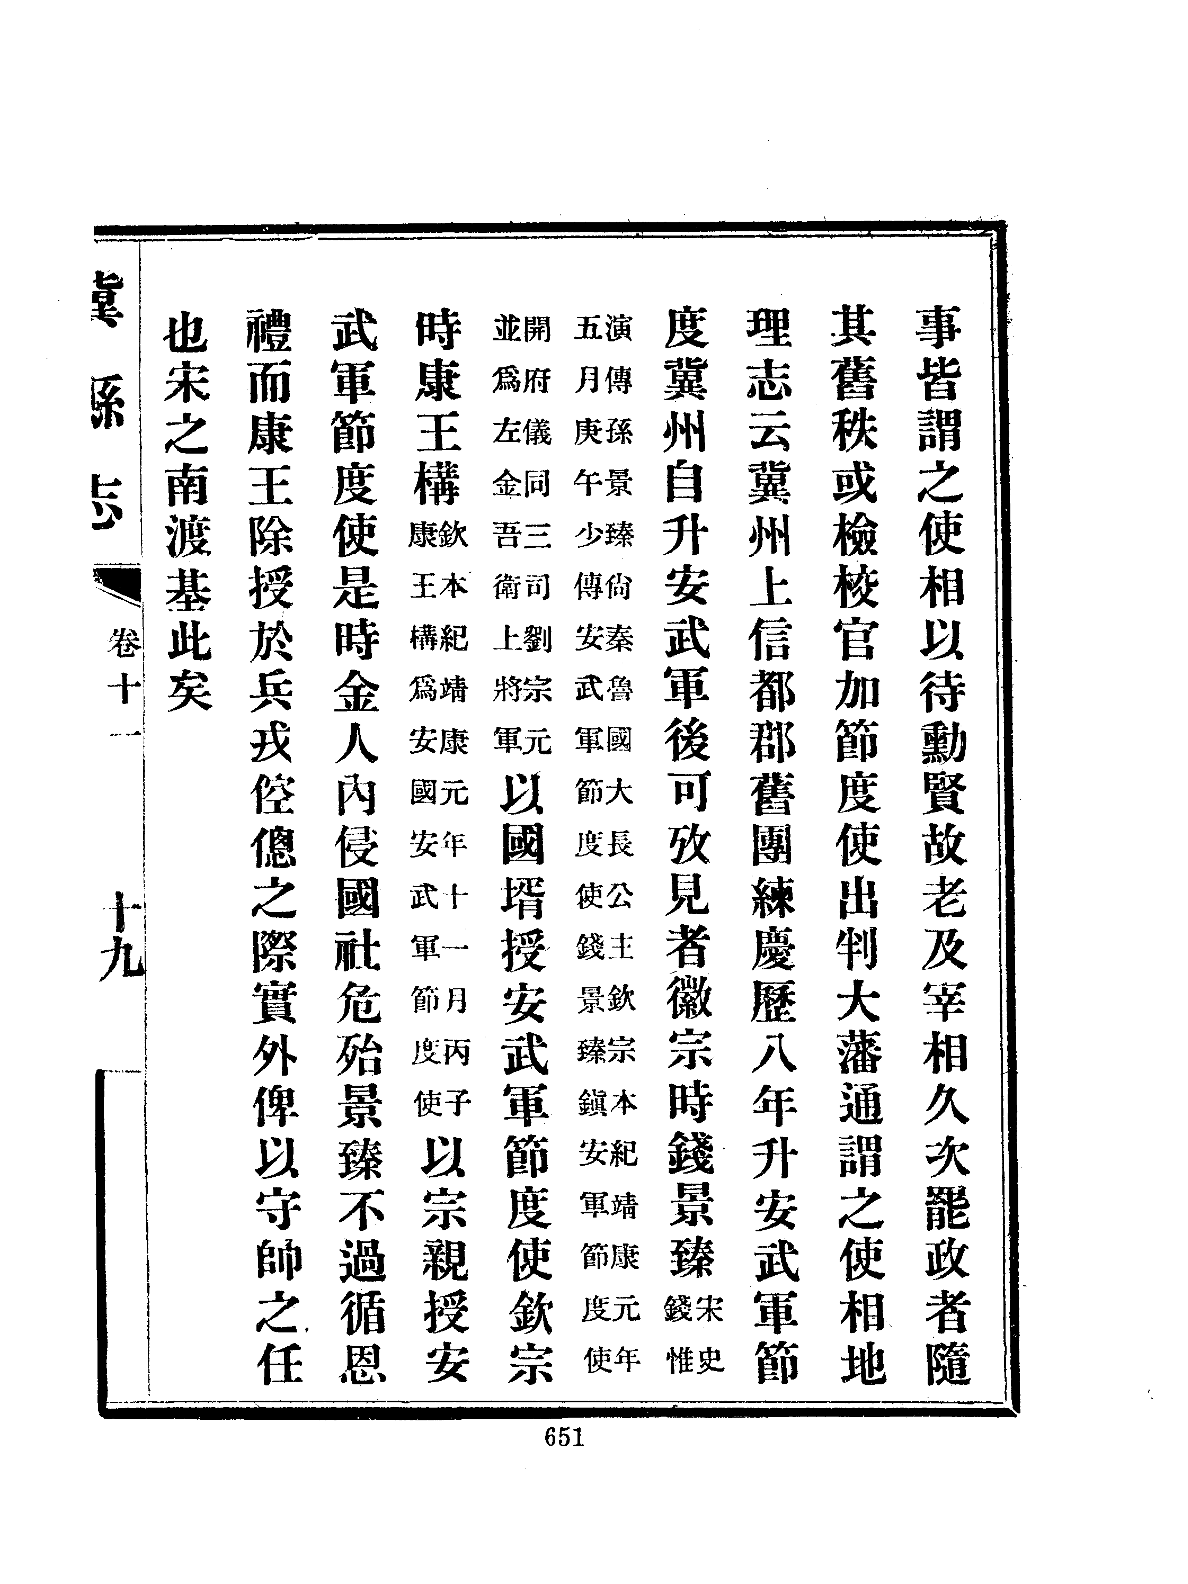 事皆謂之使相以待勳賢故老及宰相久次罷政者隨
其舊秩或檢校官加節度使出判大藩通謂之使相地
理志云冀州上信都郡舊團練慶歷八年升安武軍節
度冀州自升安武軍後可攷見者徽宗時錢景臻宋史錢惟
演傳孫景臻尙秦魯國大長公主欽宗本紀靖康元年
五月庚午少傅安武軍節度使錢景臻鎭安軍節度使
開府儀同三司劉宗元
並爲左金吾衛上將軍以國壻授安武軍節度使欽宗
時康王構欽本紀靖康元年十一月丙子康王構爲安國安武軍節度使以宗親授安
武軍節度使是時金人內侵國社危殆景臻不過循恩
禮而康王除授於兵戎倥傯之際實外俾以守帥之任
也宋之南渡基此矣
冀縣志
卷十一
十九
651